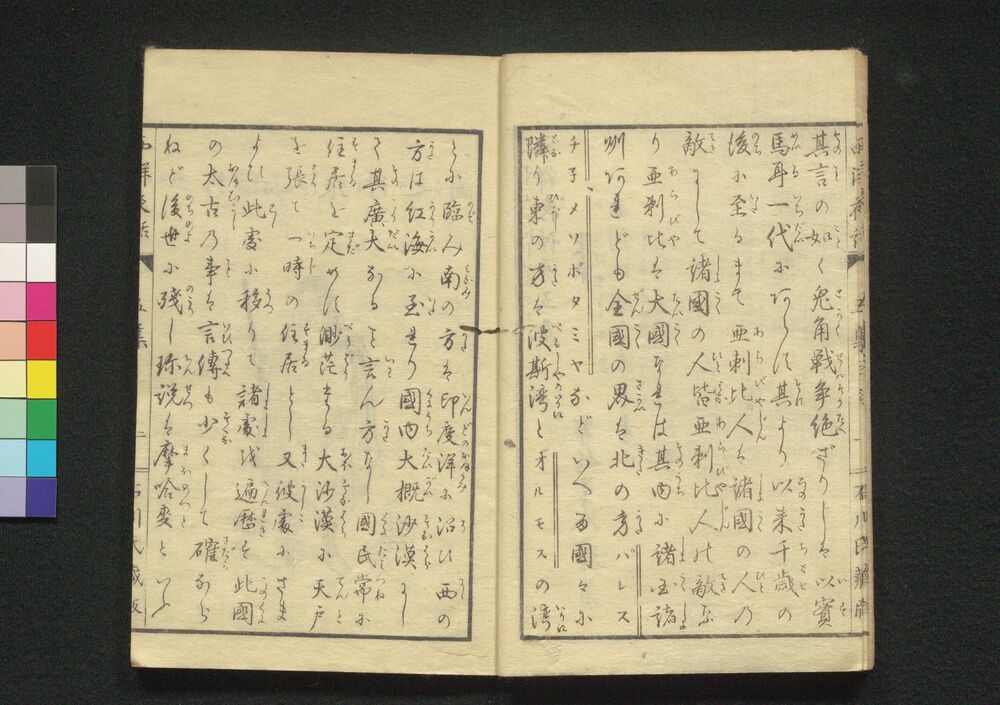 其言の如く兎角戦争絶ざりしハ以賓
馬耳一代にあらず其より以来千歳の
後に至るまて亜刺比人ハ諸國の人の
敵にして諸國の人皆亜刺比人の敵な
り亜刺比ハ大國なれは其内に諸
州あれども全國の界ハ北の方パレス
チ子メソポタミヤなどいへる國々に
隣り東の方ハ波斯湾とオルモスの湾
とに臨み南の方ハ印度洋に沿ひ西の
方は紅海に至れり國内大概沙漠にし
て其廣大なること言ん方なし國民常に
住居を定めず渺茫たる大沙漠に天戸
を張て一時の住居とし又彼處にさま
よひ此處に移りて諸處を遍歴す此國
の太古乃事ハ言傳も少くして確なら
ねど後世に残し珎説を摩哈麦といふ